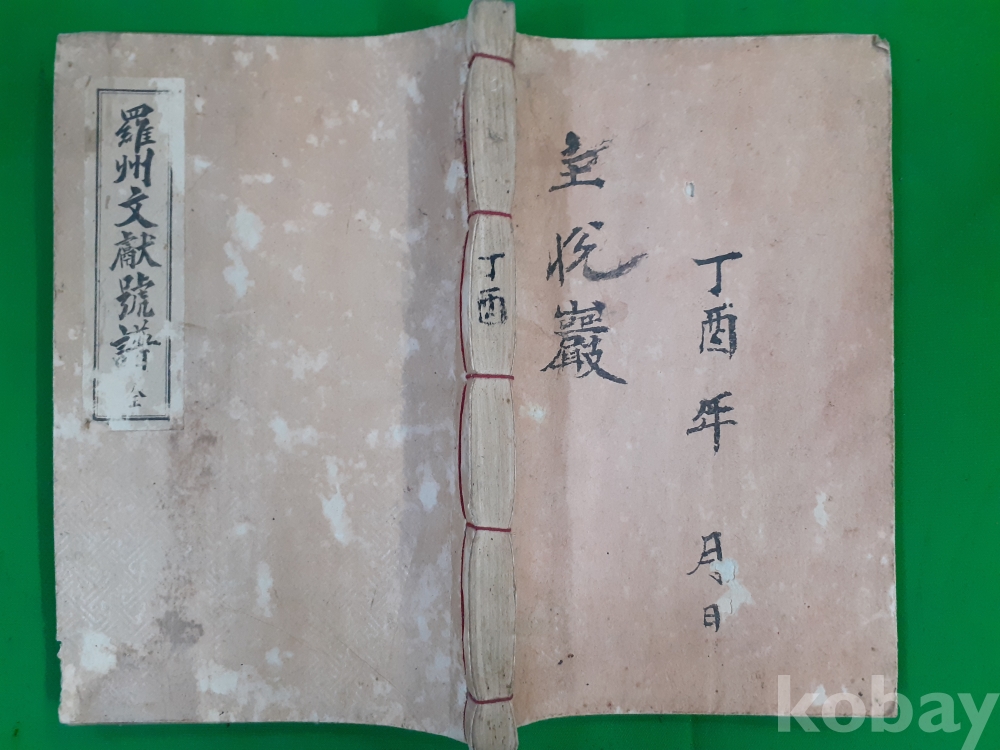 羅州文獻號譜 全
丁酉
丁酉年 月 日
主 悅巖
kobay